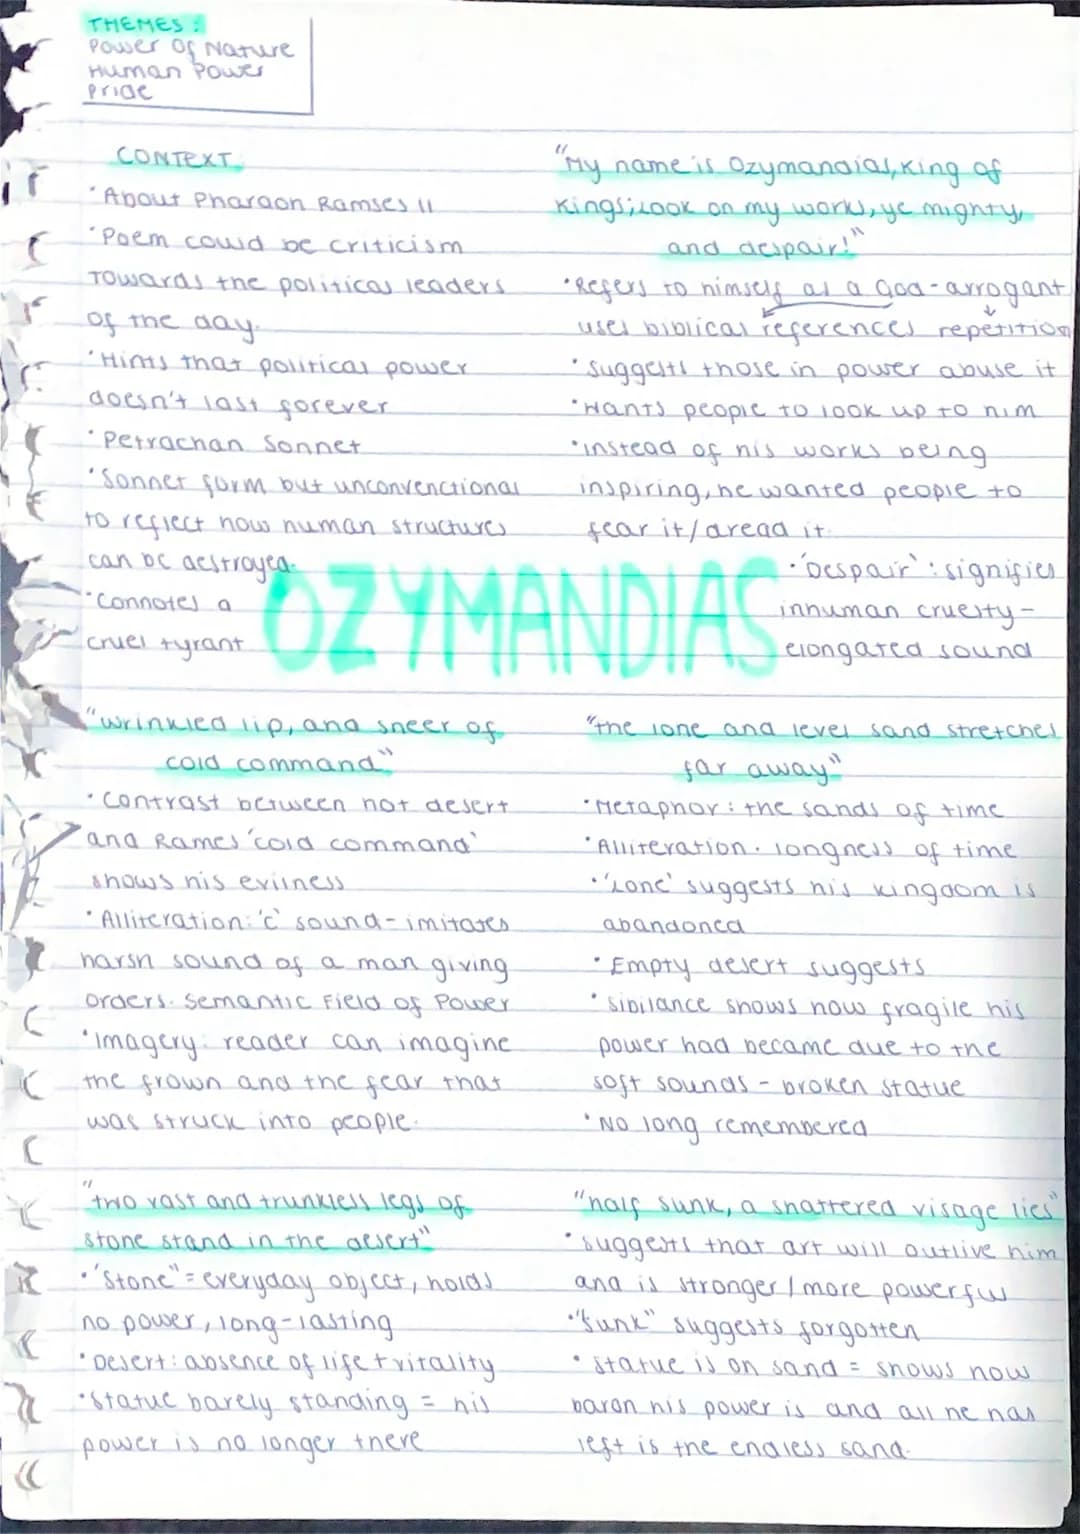 THEMES:
Power Of Nature
Human Power
Pride
CONTEXT
•About Pharaoh Ramses II
•Poem could be criticism
Towards the political leaders
of the day.
•Hints that political power
doesn't last forever
•Petrachan Sonnet
•Sonnet form but unconventional
to reflect how human structures
can be destroyed.
•Connotes a
cruel tyrant
"My name is Ozymandias, King of
Kings; Look on my works, ye mighty,
and despair!"
•Refers to himself as a God-arrogant
uses biblical references repetition
•suggests those in power abuse it
•Wants people to look up to him
•instead of his works being
inspiring, he wanted people to
fear it/dread it.
•'Despair': signifies
inhuman cruelty-
elongated sound
OZYMANDIAS
"wrinkled lip, and sneer of
cold command"
•Contrast between hot desert
and Rames 'cold command'
shows his evilness
•Alliteration: 'c' sound-imitates
harsh sound of a man giving
orders. Semantic Field of Power
•Imagery: reader can imagine
the frown and the fear that
was struck into people.
"the lone and level sand stretches
far away"
•Metaphor: the sands of time
•Alliteration. longness of time
•'Lone' suggests his kingdom is
abandoned
•Empty desert suggests
•sibilance shows how fragile his
power had became due to the
soft sounds - broken statue
•No long remembered
"two vast and trunkless legs of
stone stand in the desert"
•'Stone" = everyday object, holds
no power, long-lasting
•Desert: absence of life + vitality
•Statue barely standing = his
power is no longer there
"half sunk, a shattered visage lies"
•suggests that art will outlive him
and is stronger/more powerful
•"Sunk" suggests forgotten
•statue is on sand = shows how
baron his power is and all he has
left is the endless sand.